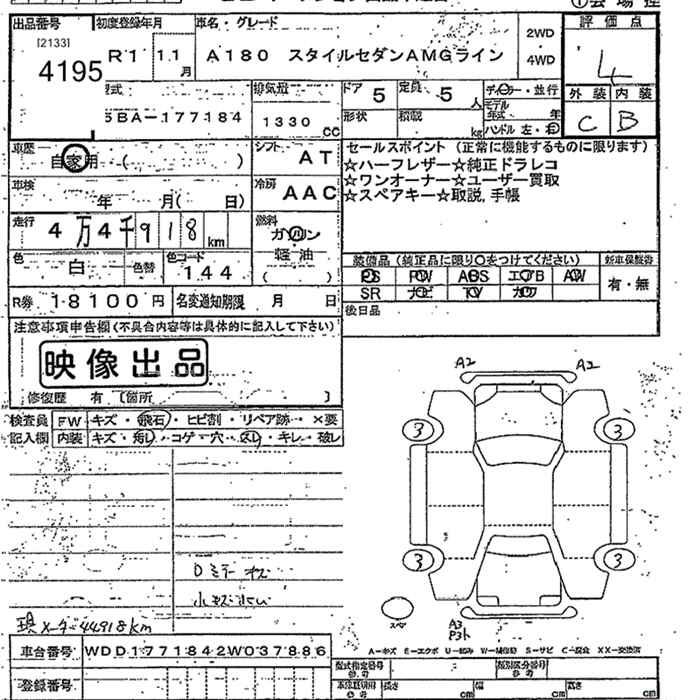 出品番号
[2133]
4195
初度登録年月
R1 11月
車名・グレード
A180 スタイルセダンAMGライン
2WD
4WD
評価点
4
外装 内装
C B
型式
5BA-177184
排気量
1330 cc
ドア 5
定員 5 人
形状
積載 kg
ディーラー・並行
モデル年式 年
ハンドル 左・右
車歴
自家用 ( )
シフト
AT
車検
年 月( 日)
冷房
AAC
走行
4万4千918km
燃料
ガソリン
軽油
( )
色
白
色替
色コード
144
R券 18100円
名変通知期限 月 日
セールスポイント (正常に機能するものに限ります)
☆ハーフレザー☆純正ドラレコ
☆ワンオーナー☆ユーザー買取
☆スペアキー☆取説,手帳
装備品 (純正品に限り○をつけてください)
新車保証書
PS PW ABS エアB AW
SR ナビ TV カワ
有・無
後日品
注意事項申告欄 (不具合内容等は具体的に記入して下さい)
映像出品
修復歴 有 〔箇所 〕
検査員
記入欄
FW キズ・飛石・ヒビ割・リペア跡・×要
内装 キズ・汚レ・コゲ・穴・スレ・キレ・破レ
Dミラー キズ
現メーター44918km
A2 A2
3 3
3 3
スペア
A3
A-キズ E-エクボ U-凹ミ W-補修跡 S-サビ C-腐食 XX-交換済
車台番号 WDD1771842W037886
登録番号
型式指定番号
参考
類別区分番号
参考
長さ cm 幅 cm 高さ cm